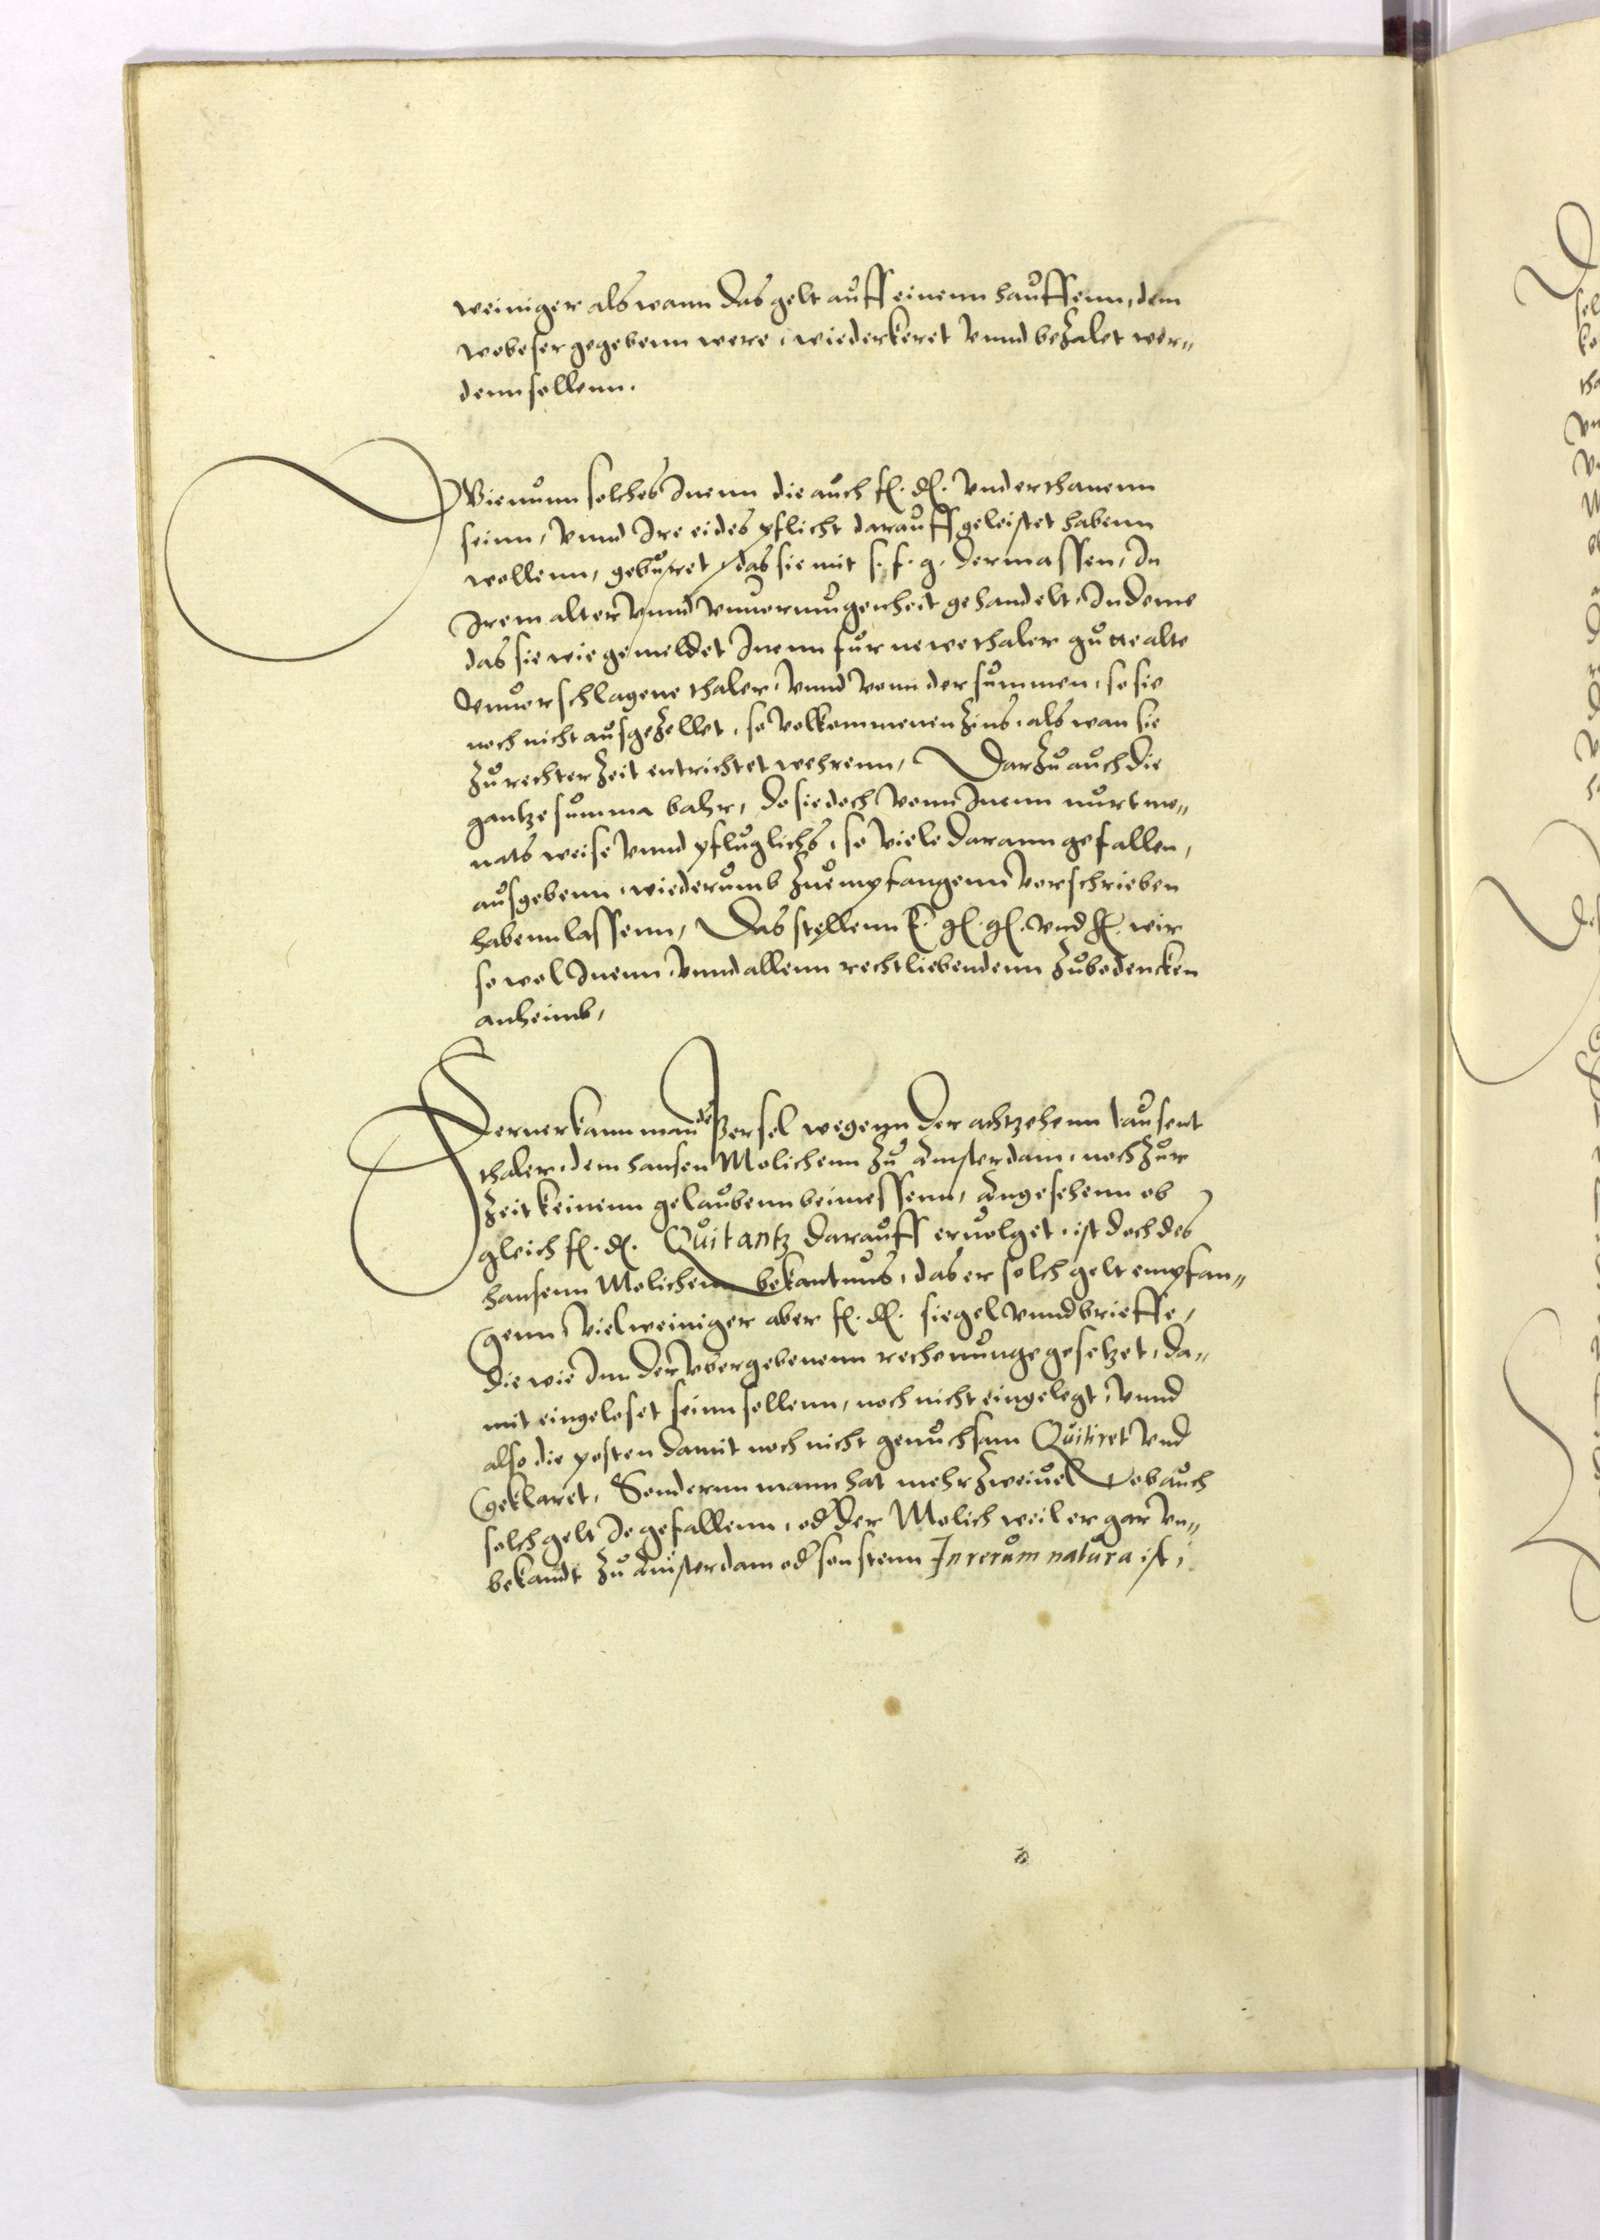 weiniger als wann das gelt auff einenn hauffenn, dem
wobeser gegebenn were, wiederkeret vnnd bezalet wer„
denn sollenn.
Wie nunn solches Inenn die auch f. d. vnderthanenn
seinn, vnnd Ire eides pflicht darauff geleistet habenn
wollenn, geburet, das sie mit s. f. g. dermassen, In
Irem alter vnnd vnuermugenheit gehandelt, In deme
das sie wie gemeldet Inenn fur newe thaler gute alte
vnuerschlagene thaler, vnnd vonn der summen, so sie
noch nicht ausgezellet, so volkommenen Zins, als wan sie
zu rechter Zeit entrichtet wehrenn, Darzu auch die
gantze summa bahr, do sie doch vonn Inenn nurt mo„
nats weise vnnd pfluglichs, so viele darann gefallen,
ausgebenn, wiederumb zu empfangenn verschrieben
habenn lassenn, Das stellenn E. g. g. vnd wir
so wol Inenn, vnnd allenn rechtliebendenn zubedencken
anheimb,
Ferner kann man de Bersel wegenn der achtzehenn tausent
thaler, dem hansen Molichenn zu Amsterdam, noch zur
Zeit keinenn gelaubenn beimessenn, Angesehenn ob
gleich f. d. Quitantz darauff eruolget, ist doch des
hansenn Molichen bekantnus, das er solch gelt empfan„
genn, viel weiniger aber f. d. siegel vnnd brieffe,
die wie Inn der vbergebenenn rechenunge gesetzet, da„
mit eingeloset seinn sollenn, noch nicht eingelegt, vnnd
also die posten damit noch nicht genuchsam Quitiret vnd
geklaret, Sondernn mann hat mehr Zweiuel, ob auch
solch gelt Ie gefallenn, od der Molich weil er gar vn„
bekandt zu Amsterdam od sonstenn In rerum natura ist,